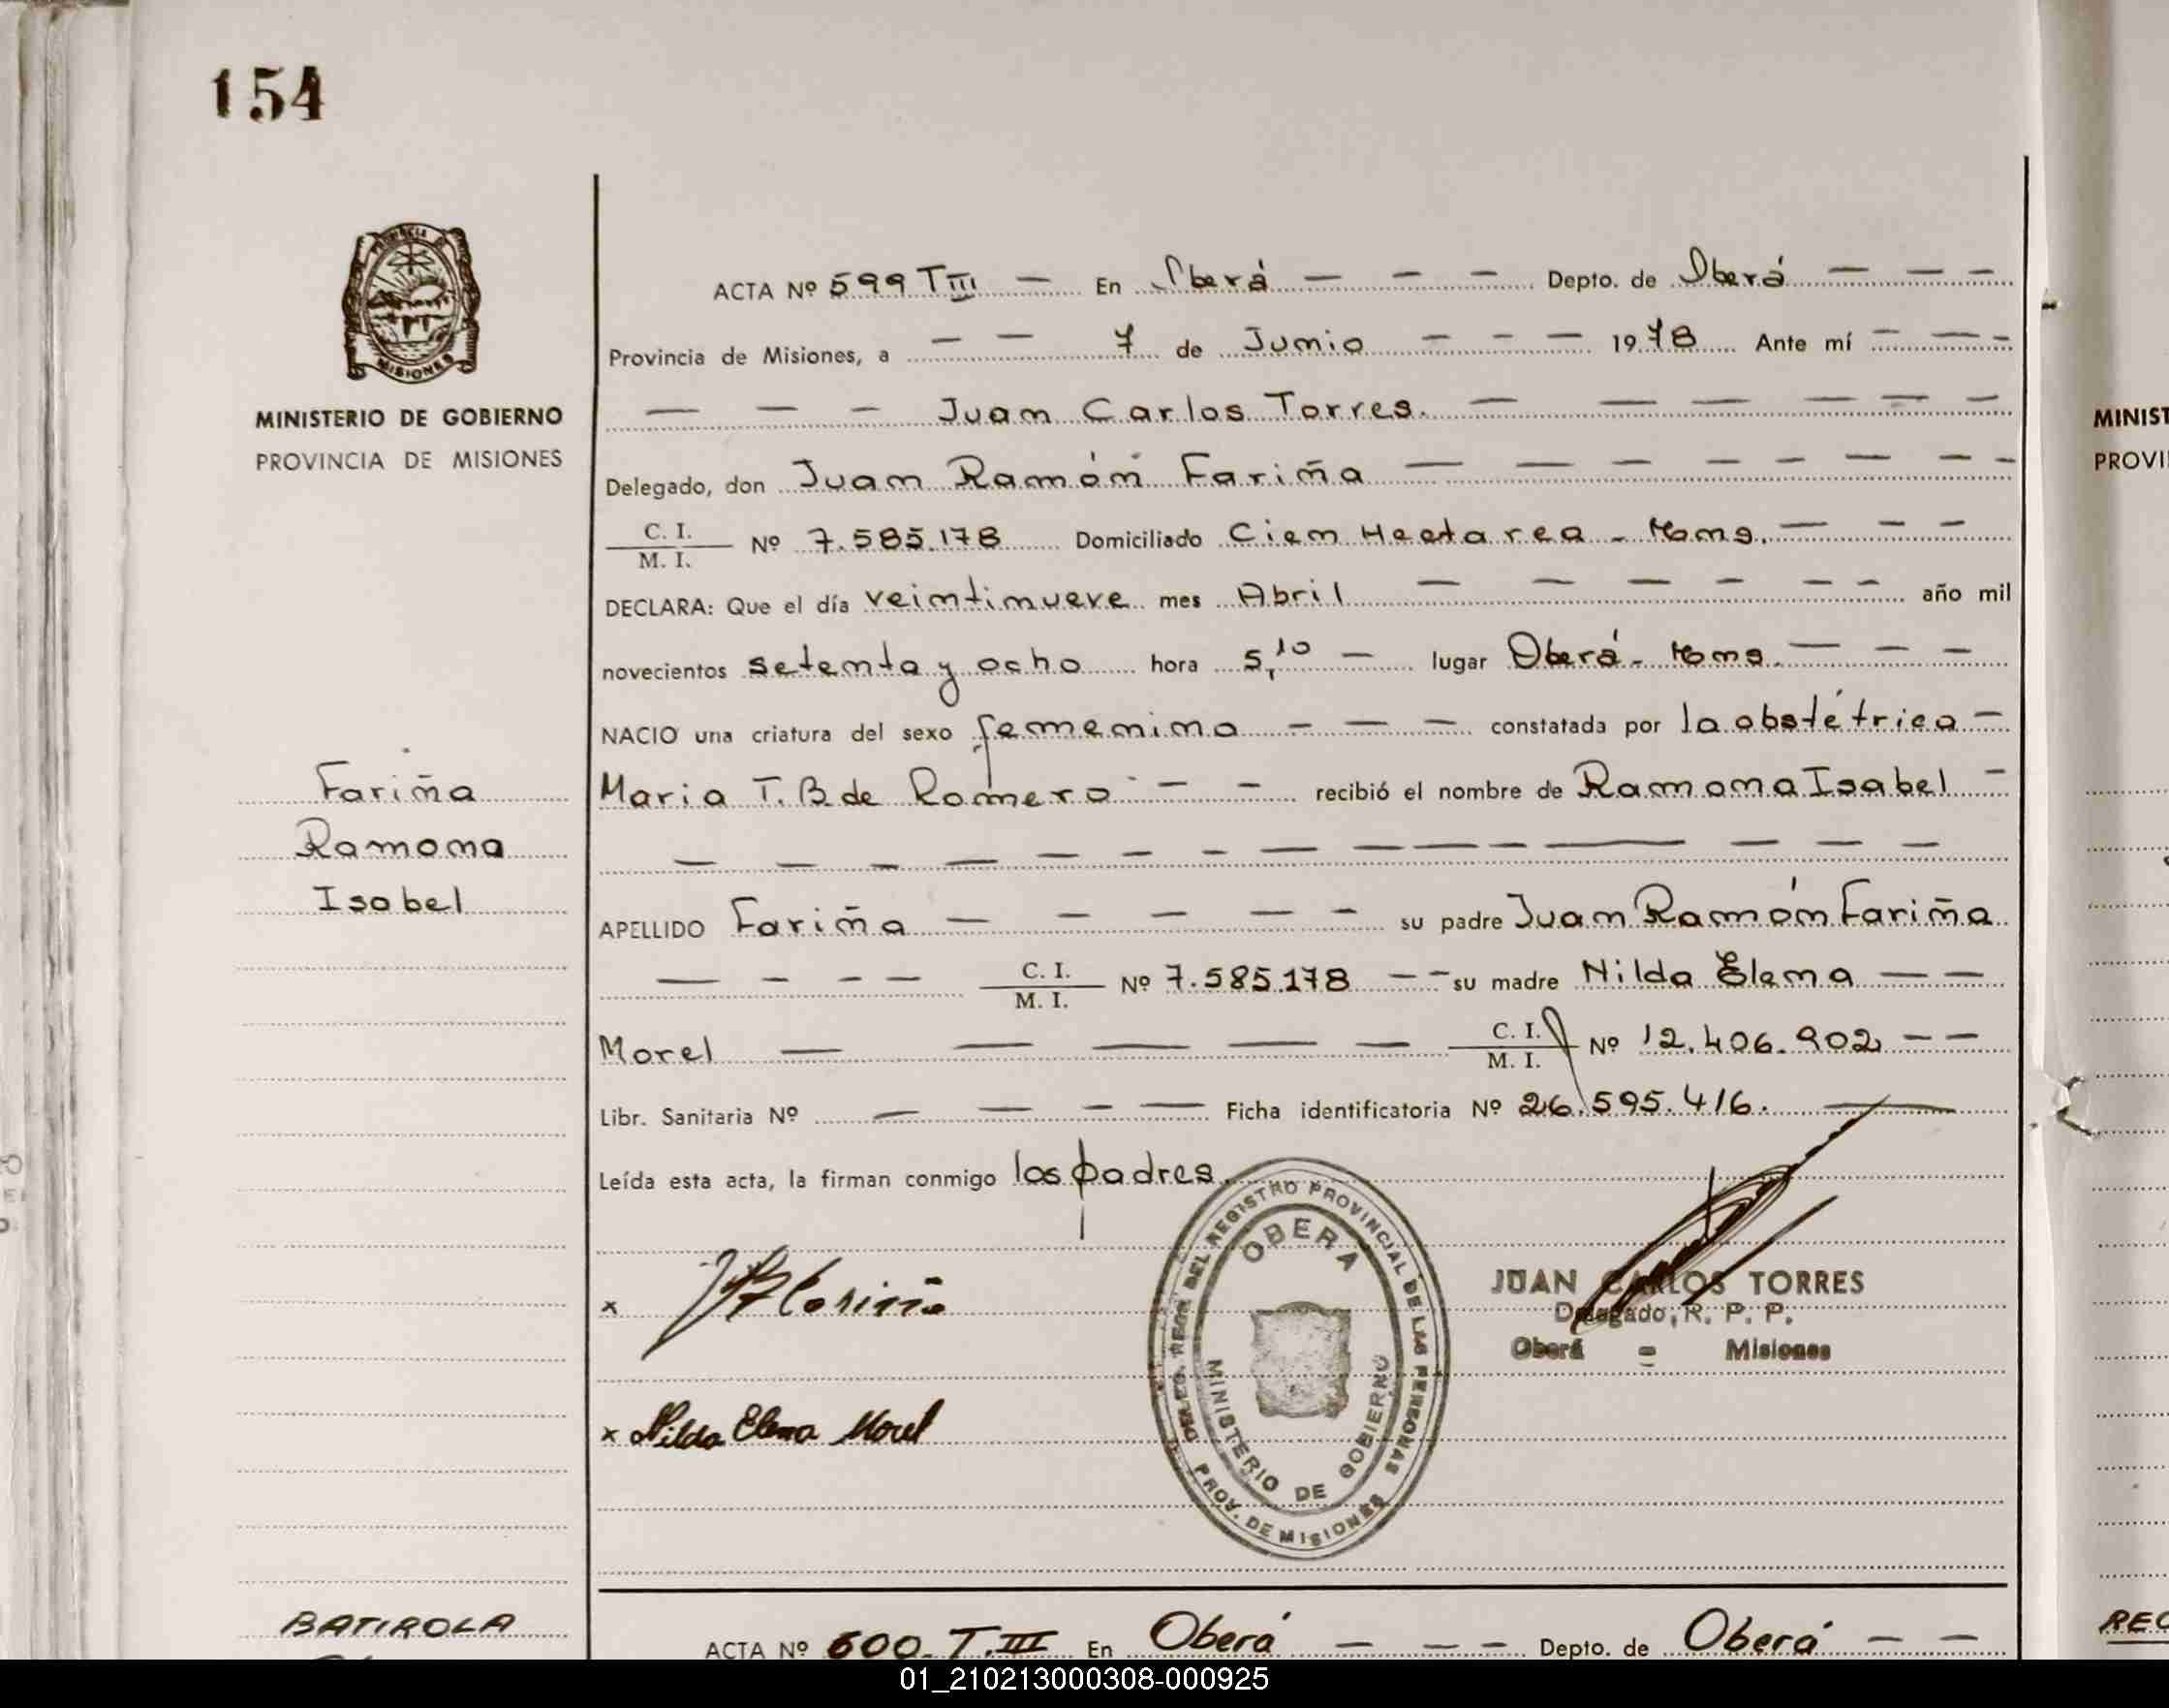 154
MINISTERIO DE GOBIERNO
PROVINCIA DE MISIONES
Fariña
Ramona
Isabel
ACTA Nº 599 T III — En Oberá — — — Depto. de Oberá — — —
Provincia de Misiones, a — — 7 de Junio — — — 1978 Ante mí — — —
— — — Juan Carlos Torres. — — — — — —
Delegado, don Juan Ramón Fariña — — — — — — — —
C. I.
M. I. Nº 7.585.178 Domiciliado Cien Hectarea - Mnes. — — —
DECLARA: Que el día veintinueve mes Abril — — — — — — año mil
novecientos setenta y ocho hora 5,10 — lugar Oberá - Mnes. — — —
NACIO una criatura del sexo femenino — — — constatada por la obstétrica —
Maria T. B. de Romero — — recibió el nombre de Ramona Isabel —
— — — — — — — — — — — — — — —
APELLIDO Fariña — — — — — su padre Juan Ramón Fariña
— — — — C. I.
M. I. Nº 7.585.178 — — su madre Nilda Elena — —
Morel — — — — — C. I.
M. I. Nº 12.406.902 — —
Libr. Sanitaria Nº — — — — Ficha identificatoria Nº 26.595.416. —
Leída esta acta, la firman conmigo los padres.
x Fariña
x Nilda Elena Morel
DELEG. REGN. DEL REGISTRO PROVINCIAL DE LAS PERSONAS
OBERA
MINISTERIO DE GOBIERNO
PROV. DE MISIONES
JUAN CARLOS TORRES
Delegado, R. P. P.
Oberá - Misiones
BATIROLA
ACTA Nº 600 T. III En Oberá — — — Depto. de Oberá — —
MINIST
PROVI
REC
01_210213000308-000925